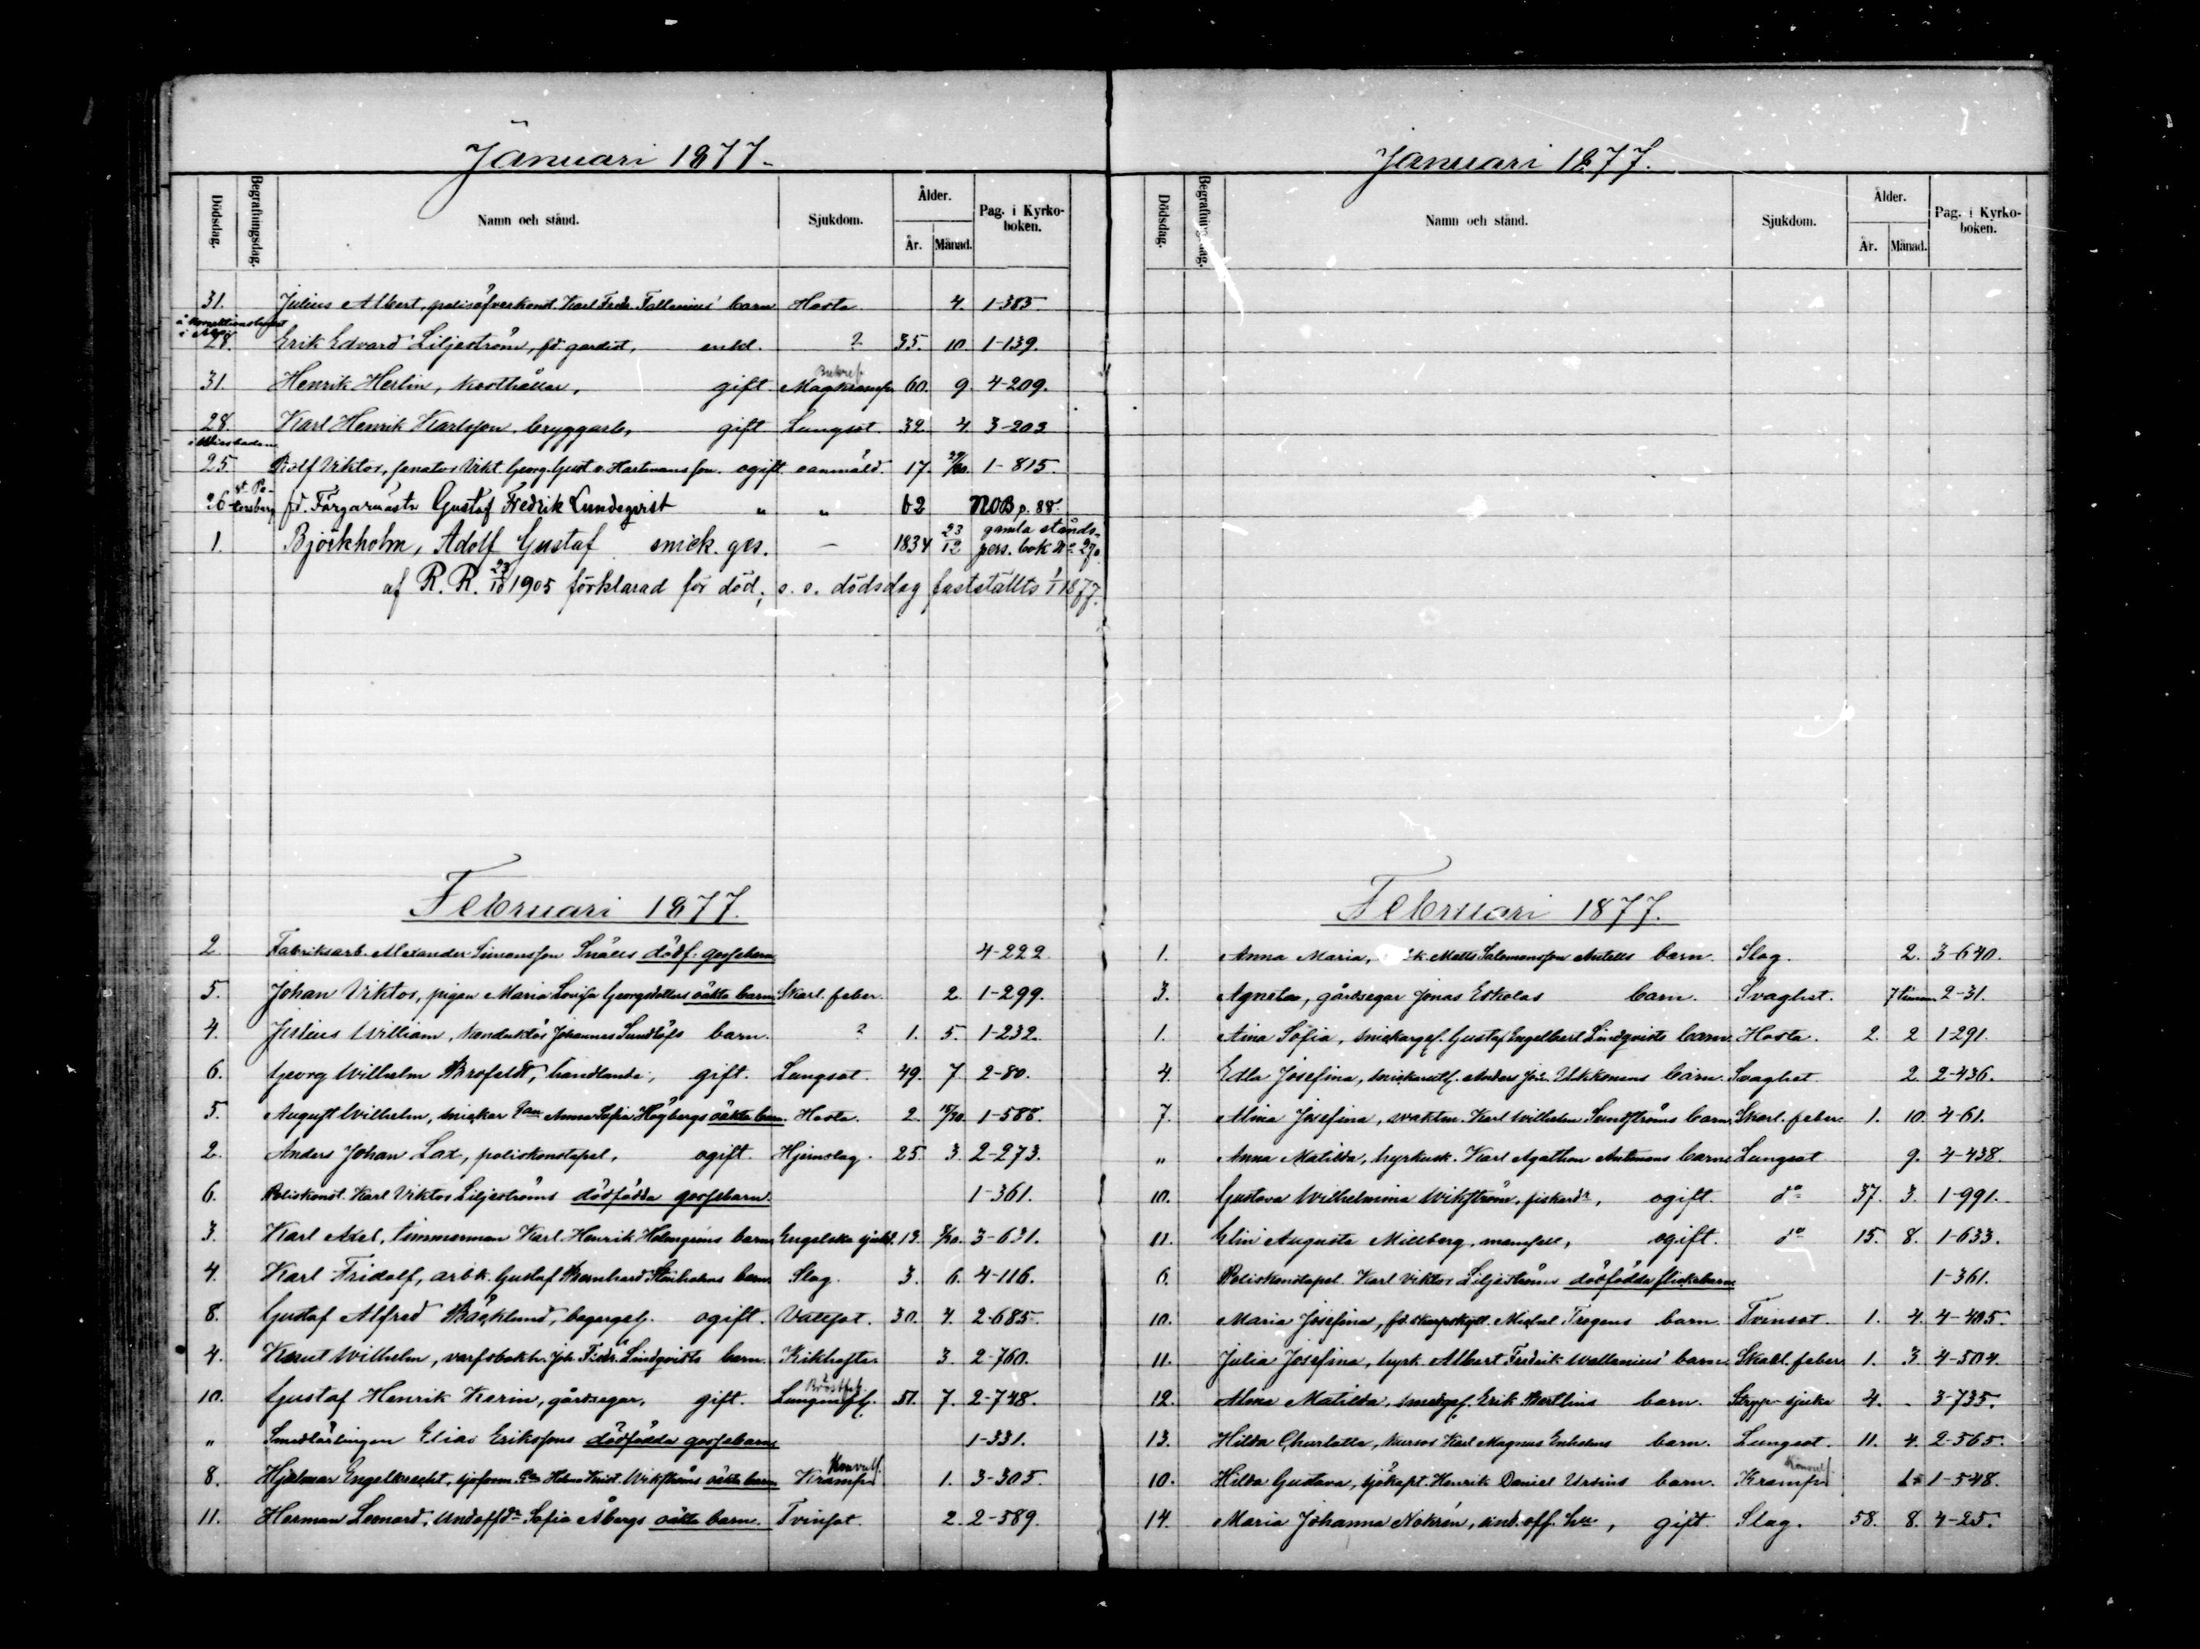 Januari 1877.
Dödsdag. Begrafningsdag. Namn och stånd. Sjukdom. Ålder. År. Månad. Pag. i Kyrko-boken.
31. Julius Albert, polisöfverkonst. Karl Fredr. Fallenius' barn Hosta 4. 1-385.
28. Erik Edvard Liljeström, fd. gardist, enkl. ? 35. 10. 1-139.
31. Henrik Herlin, kosthållar, gift Magkramp 60. 9. 4-209.
28. Karl Henrik Karlsson, bryggarb, gift Lungsot. 32. 4. 3-203
i Wiesbaden
25. Rolf Viktor, senator Vikt. Georg. Gust. v. Hartmans son. ogift oanmäld. 17. 29/30. 1-815.
26 St. Petersburg fd. Färgarmästr Gustaf Fredrik Lundeqvist " " 62 NOB p. 88.
1. Björkholm, Adolf Gustaf snick. ges. — 1834 23/12 gamla stånds-
pers. bok No 270.
af R. R. 23/10 1905 förklarad för död, s. s. dödsdag fastställts 1/1 1877.
Februari 1877.
2. Fabriksarb. Alexander Simonsson Snälls dödf. gossebarn 4-222
5. Johan Viktor, pigan Maria Lovisa Georgsdotters oäkta barn Skarl. feber. 2. 1-299.
4. Julius William, konduktör Johannes Sundlöfs barn. ? 1. 5. 1-232.
6. Georg Wilhelm Brofeldt, handlande, gift. Lungsot. 49. 7 2-80.
5. August Wilhelm, snickar Anna Sofia Högbergs oäkta barn. Hosta. 2. 15/30. 1-588.
2. Anders Johan Lax, poliskonstapel, ogift. Hjernslag. 25. 3. 2-273.
6. Poliskonst. Karl Viktor Liljeströms dödfödda gossebarn. 1-361.
3. Karl Axel, timmerman Karl Henrik Holmgréns barn Engelska sjukd. 13. 3-631.
4. Karl Fridolf, arb.k. Gustaf Bernhard Stenholms barn Slag. 3. 6. 4-116.
8. Gustaf Alfred Bäcklund, bagarges. ogift. Vattsot. 30. 4. 2-685.
4. Knut Wilhelm, varfsbokh. Joh. Fredr. Lindqvists barn. Kikhosta. 3. 2-760.
10. Gustaf Henrik Karin, gårdsegar, gift. 51. 7. 2-748.
" Smedlärlingen Elias Erikssons dödfödda gossebarn 1-331.
8. Hjalmar Engelbrecht, Wikströms oäkta barn Kramp Konvuls. 1. 3-305.
11. Herman Leonard, Undoff.dr Sofia Åbergs oäkta barn. Tvinsot. 2. 2-589.
Januari 1877.
Dödsdag. Begrafningsdag. Namn och stånd. Sjukdom. Ålder. År. Månad. Pag. i Kyrko-boken.
Februari 1877.
1. Anna Maria, Matts Salomonsson Antells barn. Slag. 2. 3-640.
3. Agneta, gårdsegar Jonas Eskolas barn. Svaghet. 7 timmar 2-31.
1. Aina Sofia, snickarges. Gustaf Engelbert Lindqvists barn Hosta. 2. 2 1-291.
4. Edla Josefina, Anders Joh. Ukkonens barn. Svaghet 2. 2-436.
7. Alma Josefina, vaktm. Karl Wilhelm Sundströms barn Skarl. feber. 1. 10. 4-61.
" Anna Matilda, hyrkusk. Karl Agathon Antmans barn Lungsot 9. 4-438.
10. Gustava Wilhelmina Wikström, fiskardr, ogift. do 37. 3. 1-991.
11. Elin Augusta Millberg, mamsell, ogift. do 15. 8. 1-633.
6. Poliskonstapel. Karl Viktor Liljeströms dödfödda flickebarn 1-361.
10. Maria Josefina, fd. skarpskytt. Michel Tregens barn. Tvinsot. 1. 4. 4-405.
11. Julia Josefina, hyrk. Albert Fredrik Wallenius' barn. Skarl. feber. 1. 3. 4-504.
12. Alma Matilda, smedges. Erik Bertlins barn. Stryp-sjuka 4. - 3-735.
13. Hilda Charlotta, kursor Karl Magnus Enholms barn. Lungsot. 11. 4. 2-565.
10. Hilda Gustava, sjökapt. Henrik Daniel Ursins barn. Kramp Konvuls. 1-548.
14. Maria Johanna Nokrén, und.off. hu, gift. Slag. 58. 8. 4-25.